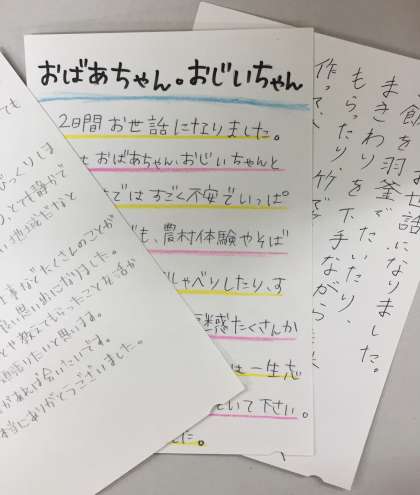 おばあちゃん。おじいちゃん
2日間お世話になりました。
おばあちゃん、おじいちゃんと
ではすごく不安でいっぱ
も、農村体験やそば
しゃべりしたり、す
迷惑たくさんか
は一生忘
いて下さい。
た。
お世話になりました。
飯を羽釜でたいたり、
まきわりを
もらったり、下手ながら
作って
竹で
ても
びっくりしま
とても静かで
い地域だなと
事などでたくさんのことが
良い思い出になりました。
や教えてもらったことを活か
頑張りたいと思います。
があれば会いたいです。
本当にありがとうございました。